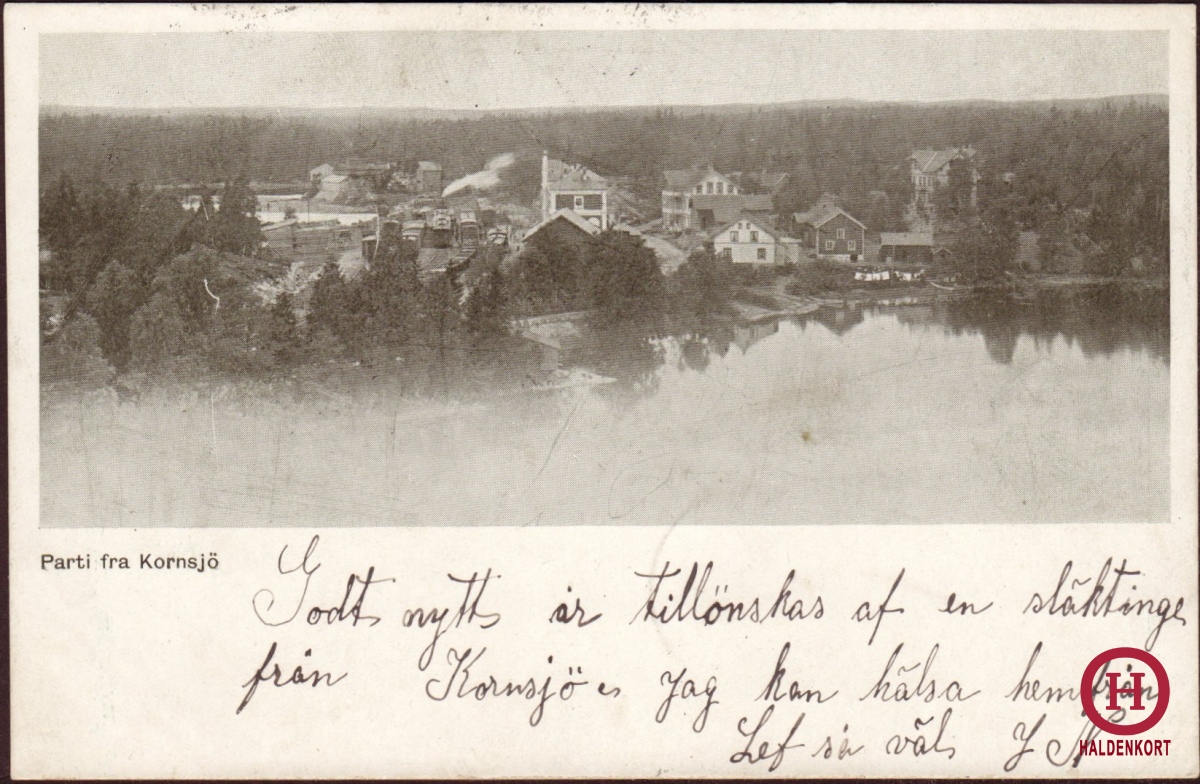 Parti fra Kornsjö
Godt nytt år tillönskas af en släktinge
från Kornsjö. Jag kan hälsa hemifrån
Lef så väl J N
H
HALDENKORT